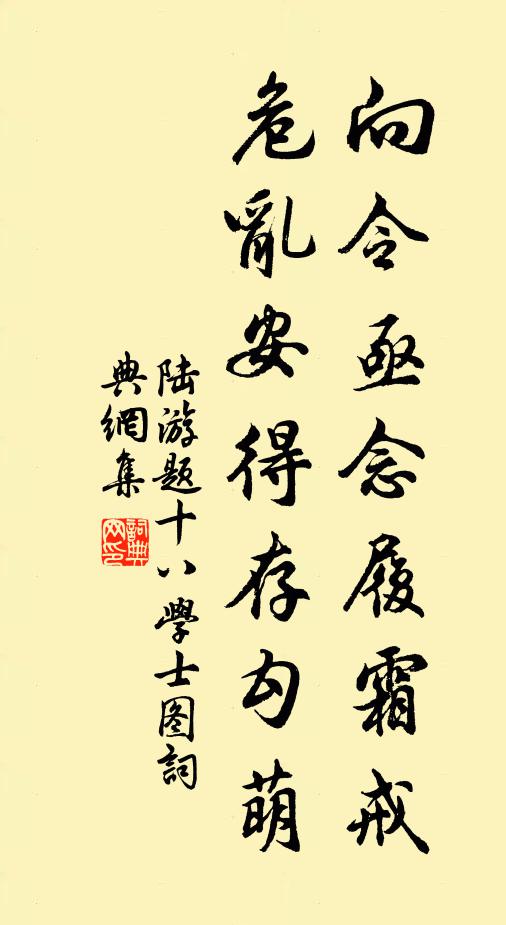 向令亟念履霜戒
危亂安得存勾萌
陆游题十八學士图詞
典網集
詞典網印